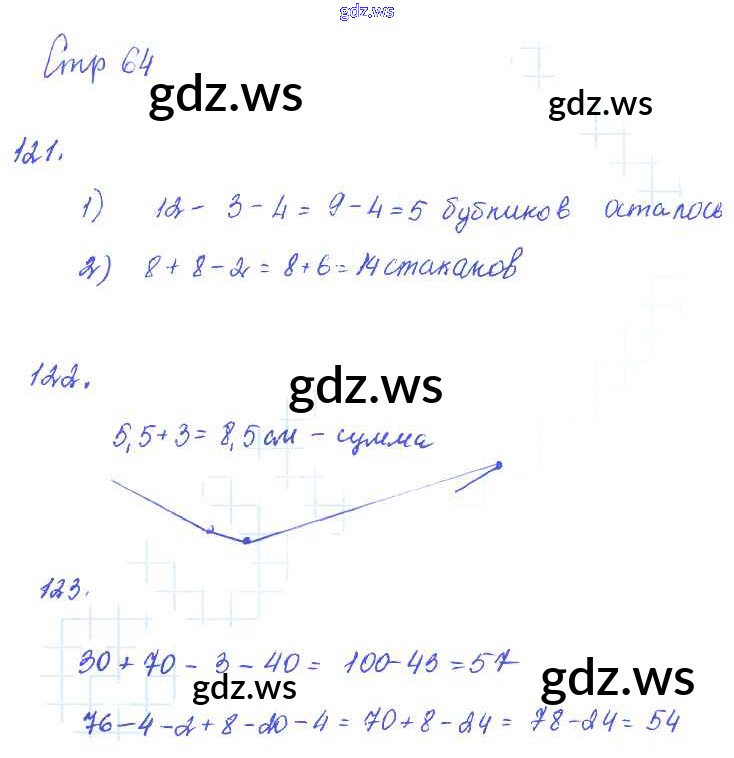 gdz.ws
Стр 64
gdz.ws
gdz.ws
121.
1) 12 - 3 - 4 = 9 - 4 = 5 бубликов осталось
2) 8 + 8 - 2 = 8 + 6 = 14 стаканов
122.
gdz.ws
5,5 + 3 = 8,5 см - сумма
123.
30 + 70 - 3 - 40 = 100 - 43 = 57
gdz.ws
gdz.ws
76 - 4 - 2 + 8 - 20 - 4 = 70 + 8 - 24 = 78 - 24 = 54